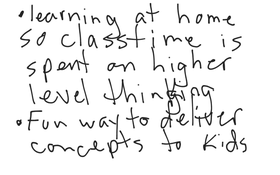 •learning at home
so classtime is
spent on higher
level thinging
•Fun way to deliver
concepts to kids